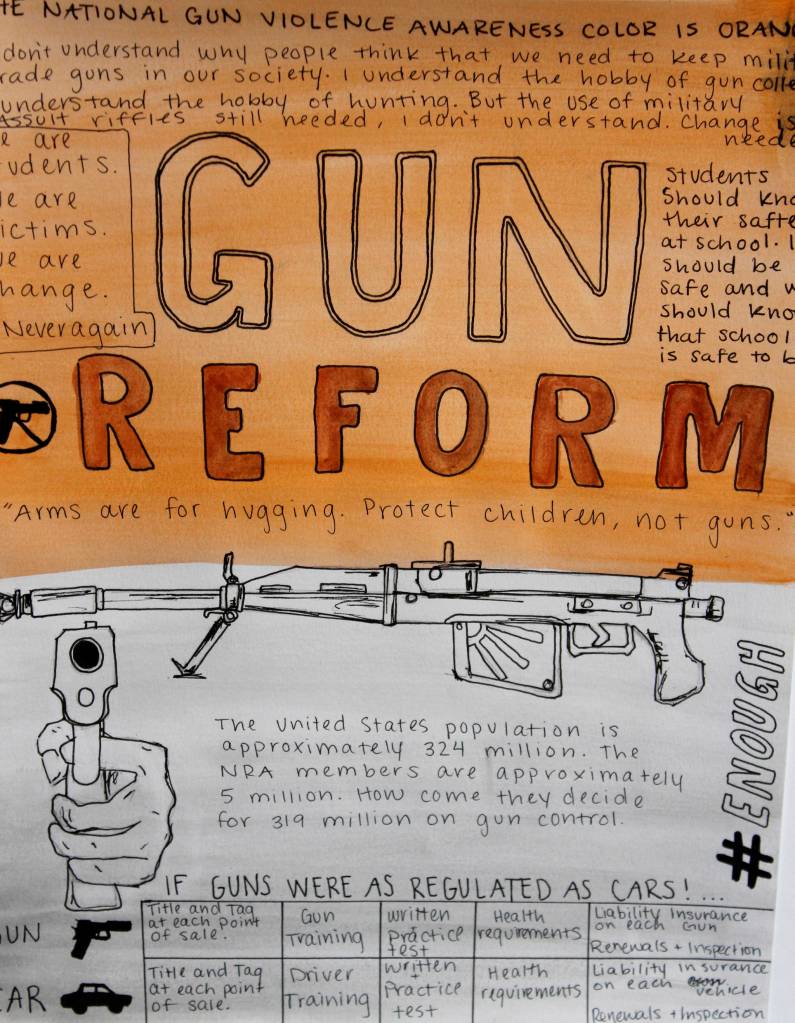 HE NATIONAL GUN VIOLENCE AWARENESS COLOR IS ORANG
don't understand why people think that we need to keep milit
rade guns in our society. I understand the hobby of gun colle
understand the hobby of hunting. But the use of military
Assult riffles still needed, I don't understand. Change is
neede
e are
udents.
e are
ictims.
e are
hange.
Neveragain
GUN
Students
Should kno
their safte
at school. I
should be
safe and w
should kno
that school
is safe to b
REFORM
"Arms are for hugging. Protect children, not guns."
#ENOUGH
The United States population is
approximately 324 million. The
NRA members are approximately
5 million. How come they decide
for 319 million on gun control.
IF GUNS WERE AS REGULATED AS CARS!...
GUN
Title and Tag
at each point
of sale.
Gun
Training
written
Practice
test
Health
requirements
Liability Insurance
on each Gun
Renewals + Inspection
CAR
Title and Tag
at each point
of sale.
Driver
Training
written
+
Practice
test
Health
requirements
Liability insurance
on each vehicle
Renewals + Inspection